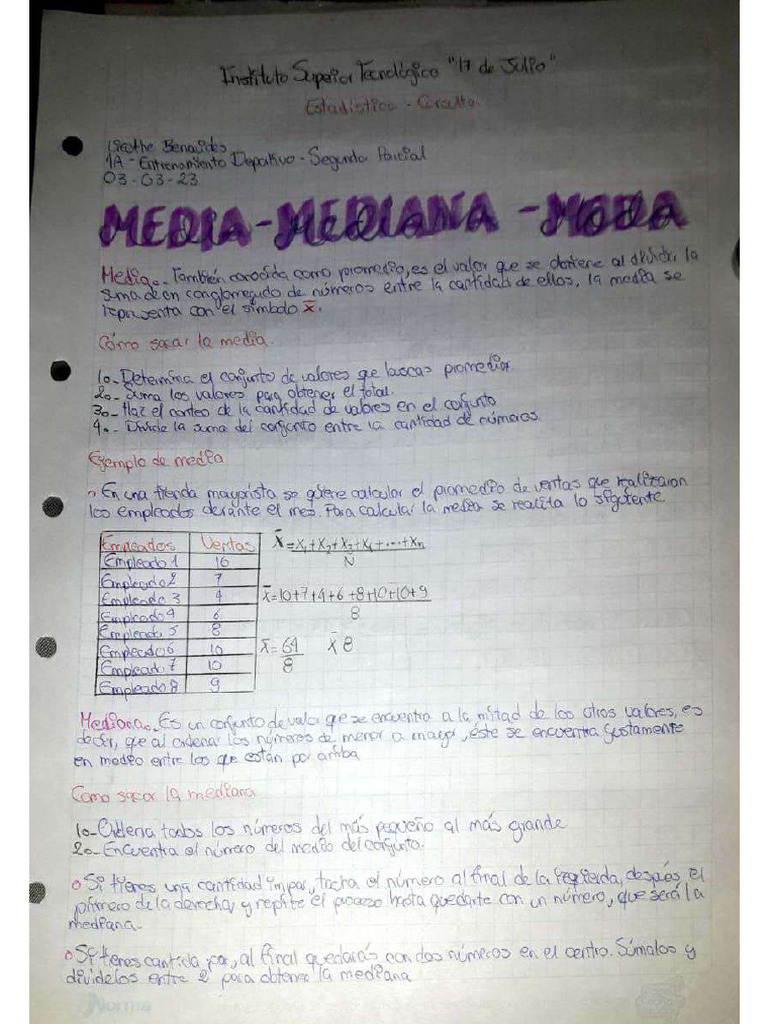 Instituto Superior Tecnológico "17 de Julio"
Estadística - Consulta
Benavides
1A - Entrenamiento Deportivo - Segundo Parcial
03 - 03 - 23
MEDIA - MEDIANA - MODA
Media.- También conocida como promedio, es el valor que se obtiene al dividir la
suma de un conglomerado de números entre la cantidad de ellos, la media se
representa con el símbolo x̄.
Cómo sacar la media.
1.- Determina el conjunto de valores que buscas promediar
2.- Suma los valores para obtener el total.
3.- Haz el conteo de la cantidad de valores en el conjunto
4.- Divide la suma del conjunto entre la cantidad de números.
Ejemplo de media
En una tienda mayorista se quiere calcular el promedio de ventas que realizaron
los empleados durante el mes. Para calcular la media se realita lo siguiente
Empleados Ventas
Empleado 1 10
Empleado 2 7
Empleado 3 4
Empleado 4 6
Empleado 5 8
Empleado 6 10
Empleado 7 10
Empleado 8 9
x̄ = x₁+x₂+x₃+x₄+....+xn
N
x̄ = 10+7+4+6+8+10+10+9
8
x̄ = 64 x̄ 8
8
Mediana.- Es un conjunto de valor que se encuentra a la mitad de los otros valores, es
decir, que al ordenar los números de menor a mayor, éste se encuentra justamente
en medio entre los que están por arriba
Como sacar la mediana
1.- Ordena todos los números del más pequeño al más grande
2.- Encuentra el número del medio del conjunto.
o Si tienes una cantidad impar, tacha el número al final de la izquierda, después el
primero de la derecha y repite el proceso hasta quedarte con un número, que será la
mediana.
o Si tienes cantida par, al final quedarás con dos números en el centro. Súmalos y
dividelos entre 2 para obtener la mediana
Norma